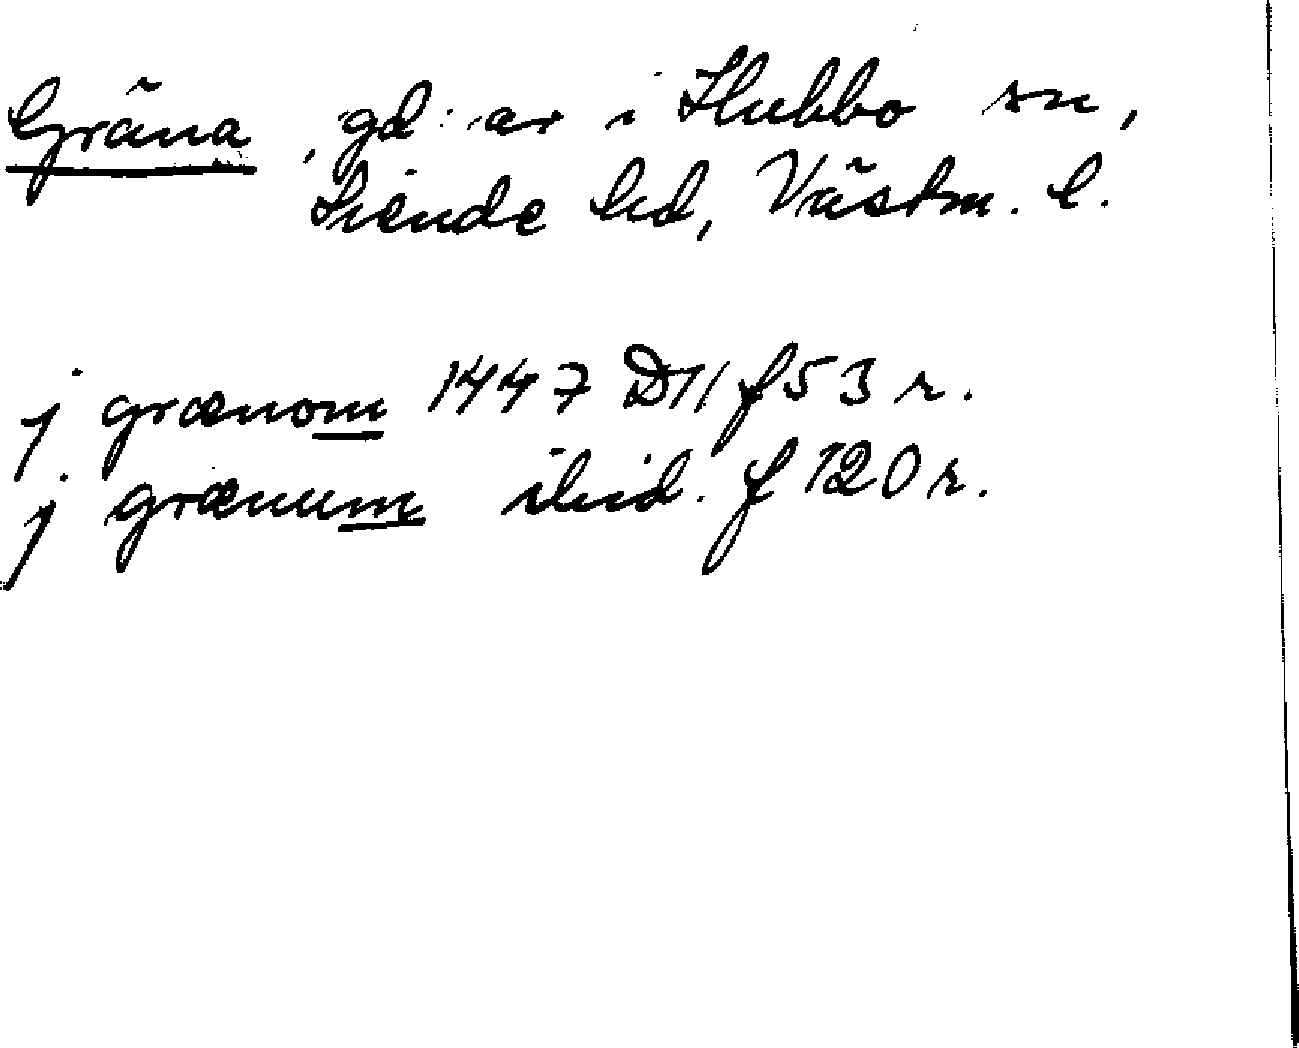 Gräna, gd:ar i Hubbo sn,
Siende hd, Västm. l.
j grænom 1447 D11 f 53 r.
j grænum ibid. f 120 r.